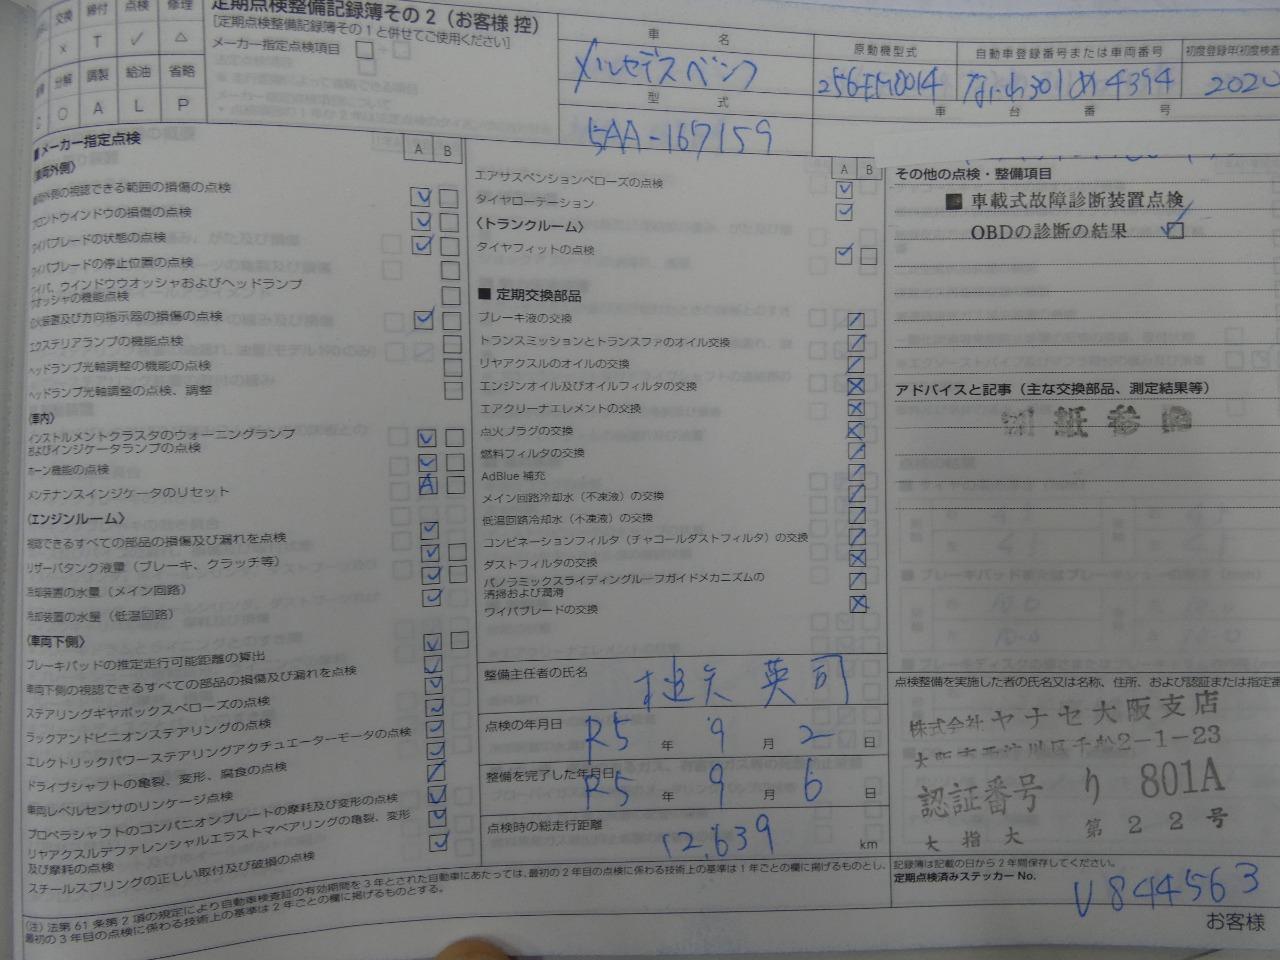 定期点検整備記録簿その2（お客様 控）
［定期点検整備記録簿その1と併せてご使用ください］
メーカー指定点検項目
交換 締付 点検 修理
× T ✓ △
分解 調製 給油 省略
○ A L P
車 名
メルセデスベンツ
型 式
5AA-167159
原動機型式
256-EM0014
自動車登録番号または車両番号
なにわ301 め 4394
初度登録年(初度検査
2020
車 台 番 号
■メーカー指定点検
A B
車両外側〉
車両外側の視認できる範囲の損傷の点検
フロントウインドウの損傷の点検
ワイパブレードの状態の点検
ワイパブレードの停止位置の点検
ワイパ、ウインドウウオッシャおよびヘッドランプ
ウオッシャの機能点検
灯火装置及び方向指示器の損傷の点検
エクステリアランプの機能点検
ヘッドランプ光軸調整の機能の点検
ヘッドランプ光軸調整の点検、調整
〈車内〉
インストルメントクラスタのウォーニングランプ
およびインジケータランプの点検
ホーン機能の点検
メンテナンスインジケータのリセット
A
〈エンジンルーム〉
視認できるすべての部品の損傷及び漏れを点検
リザーバタンク液量（ブレーキ、クラッチ等）
冷却装置の水量（メイン回路）
冷却装置の水量（低温回路）
〈車両下側〉
ブレーキパッドの推定走行可能距離の算出
車両下側の視認できるすべての部品の損傷及び漏れを点検
ステアリングギヤボックスベローズの点検
ラックアンドピニオンステアリングの点検
エレクトリックパワーステアリングアクチュエーターモータの点検
ドライブシャフトの亀裂、変形、腐食の点検
車両レベルセンサのリンケージ点検
プロペラシャフトのコンパニオンプレートの摩耗及び変形の点検
リヤアクスルデファレンシャルエラストマベアリングの亀裂、変形
及び摩耗の点検
スチールスプリングの正しい取付及び破損の点検
A B
エアサスペンションベローズの点検
タイヤローテーション
〈トランクルーム〉
タイヤフィットの点検
■ 定期交換部品
ブレーキ液の交換
トランスミッションとトランスファのオイル交換
リヤアクスルのオイルの交換
エンジンオイル及びオイルフィルタの交換
エアクリーナエレメントの交換
点火プラグの交換
燃料フィルタの交換
AdBlue 補充
メイン回路冷却水（不凍液）の交換
低温回路冷却水（不凍液）の交換
コンビネーションフィルタ（チャコールダストフィルタ）の交換
ダストフィルタの交換
パノラミックスライディングルーフガイドメカニズムの
清掃および潤滑
ワイパブレードの交換
整備主任者の氏名
英司
点検の年月日
R5 年 9 月 2 日
整備を完了した年月日
R5 年 9 月 6 日
点検時の総走行距離
12,639 km
その他の点検・整備項目
■ 車載式故障診断装置点検
OBDの診断の結果
アドバイスと記事（主な交換部品、測定結果等）
別紙参照
点検整備を実施した者の氏名又は名称、住所、および認証または指定番
株式会社 ヤナセ大阪支店
大阪市西淀川区千舟2-1-23
認証番号 り 801A
大 指 大 第 2 2 号
記録簿は記載の日から2年間保存してください。
定期点検済みステッカー No.
U844563
（注）法第61条第2項の規定により自動車検査証の有効期間を3年とされた自動車にあたっては、最初の2年目の点検に係わる技術上の基準は1年ごとの欄に掲げるものとし、
最初の3年目の点検に係わる技術上の基準は2年ごとの欄に掲げるものとする。
お客様